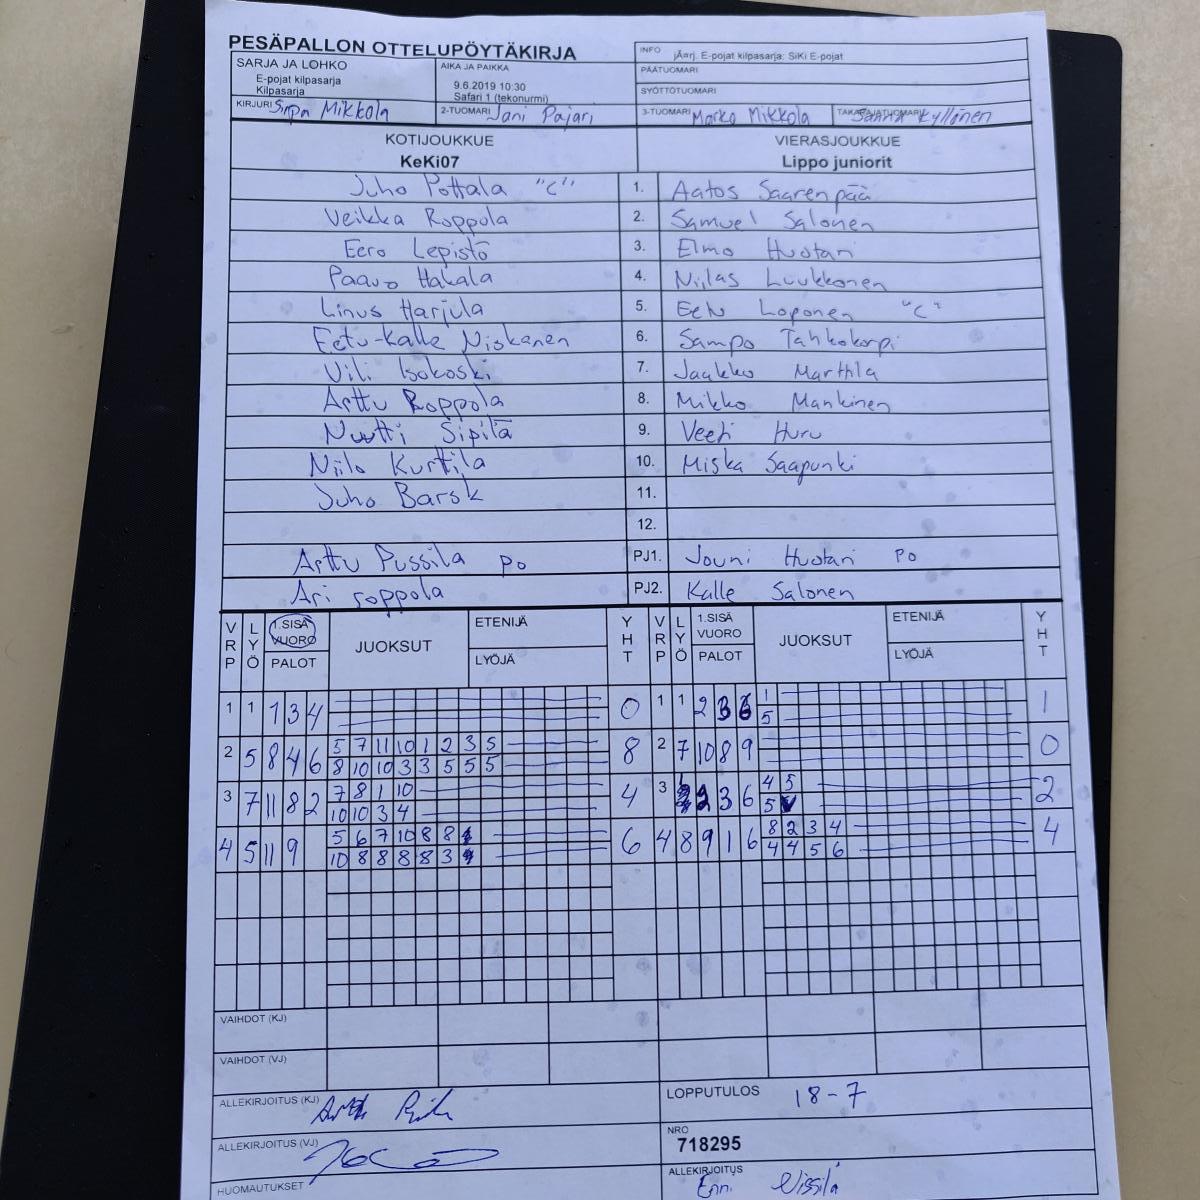 PESÄPALLON OTTELUPÖYTÄKIRJA
SARJA JA LOHKO
E-pojat kilpasarja
Kilpasarja
AIKA JA PAIKKA
9.6.2019 10:30
Safari 1 (tekonurmi)
INFO jÄarj. E-pojat kilpasarja: SiKi E-pojat
PÄÄTUOMARI
SYÖTTÖTUOMARI
KIRJURI Sirpa Mikkola
2-TUOMARI Jani Pajari
3-TUOMARI Marko Mikkola
TAKARAJATUOMARI Kyllönen
KOTIJOUKKUE
KeKi07
VIERASJOUKKUE
Lippo juniorit
Juho Pottala "C" 1. Aatos Saarenpää
Veikka Roppola 2. Samuel Salonen
Eero Lepistö 3. Elmo Huotari
Paavo Hakala 4. Niilas Luukkonen
Linus Harjula 5. Eetu Loponen "C"
Eetu-Kalle Niskanen 6. Sampo Tahkokorpi
Vili Isokoski 7. Jaakko Marttila
Arttu Roppola 8. Mikko Mankinen
Nuutti Sipilä 9. Veeti Huru
Niilo Kurttila 10. Miska Saapunki
Juho Barsk 11.
12.
Arttu Pussila po PJ1. Jouni Huotari po
Ari roppola PJ2. Kalle Salonen
VRP LYÖ 1.SISÄ VUORO PALOT JUOKSUT ETENIJÄ LYÖJÄ YHT VRP LYÖ 1.SISÄ VUORO PALOT JUOKSUT ETENIJÄ LYÖJÄ YHT
1 1 1 3 4 0 1 1 2 3 6 1 1
5
2 5 8 4 6 5 7 11 10 1 2 3 5 8 2 7 10 8 9 0
8 10 10 3 3 5 5 5
3 7 11 8 2 7 8 1 10 4 3 2 3 6 4 5 2
10 10 3 4 5
4 5 11 9 5 6 7 10 8 8 6 4 8 9 1 6 8 2 3 4 4
10 8 8 8 8 3 4 4 5 6
VAIHDOT (KJ)
VAIHDOT (VJ)
ALLEKIRJOITUS (KJ)
LOPPUTULOS 18-7
ALLEKIRJOITUS (VJ)
NRO
718295
HUOMAUTUKSET
ALLEKIRJOITUS
Enni Nissilä